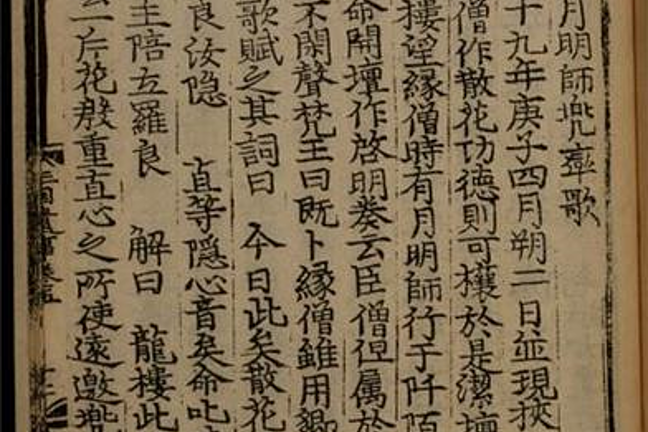 月明師兜率歌
十九年庚子四月朔二日並現挾
僧作散花功德則可禳於是潔壇
樓望緣僧時有月明師行于阡陌
命開壇作啓明奏云臣僧但属於
不閑聲梵王曰既卜緣僧雖用鄉
歌賦之其詞曰 今日此矣散花
良汝隐 直等隱心音矣命叱
主陪立羅良 解曰 龍樓此
一片花殷重直心之所使遠邀兜
三國遺事卷五